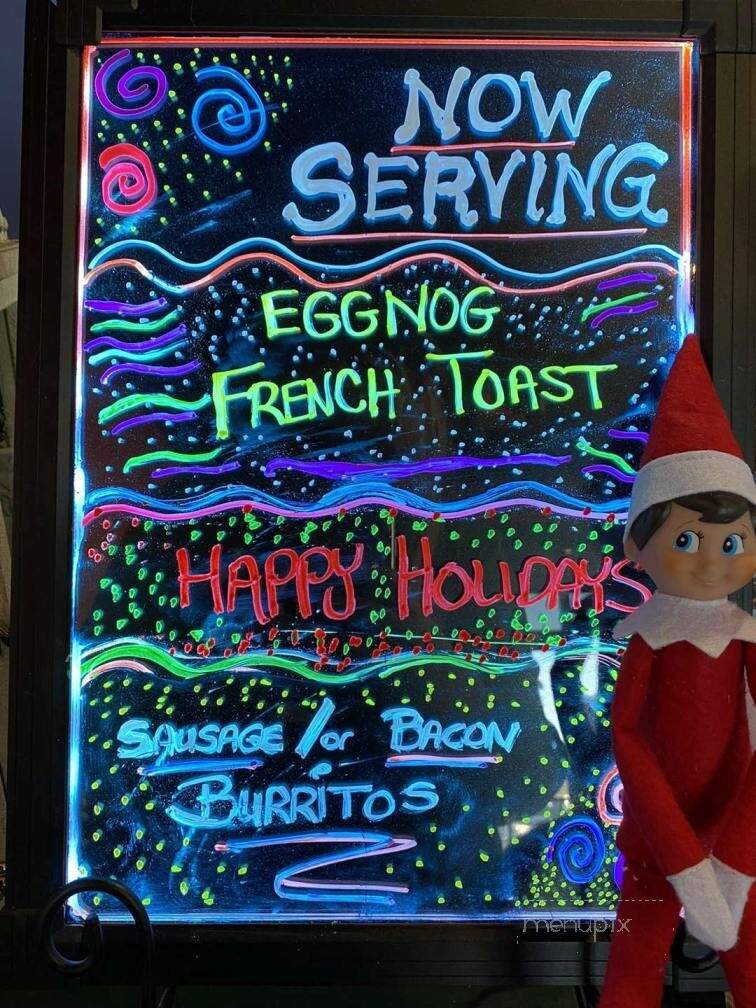 NOW
SERVING
EGGNOG
FRENCH TOAST
HAPPY HOLIDAYS
SAUSAGE / or BACON
BURRITOS
menupix